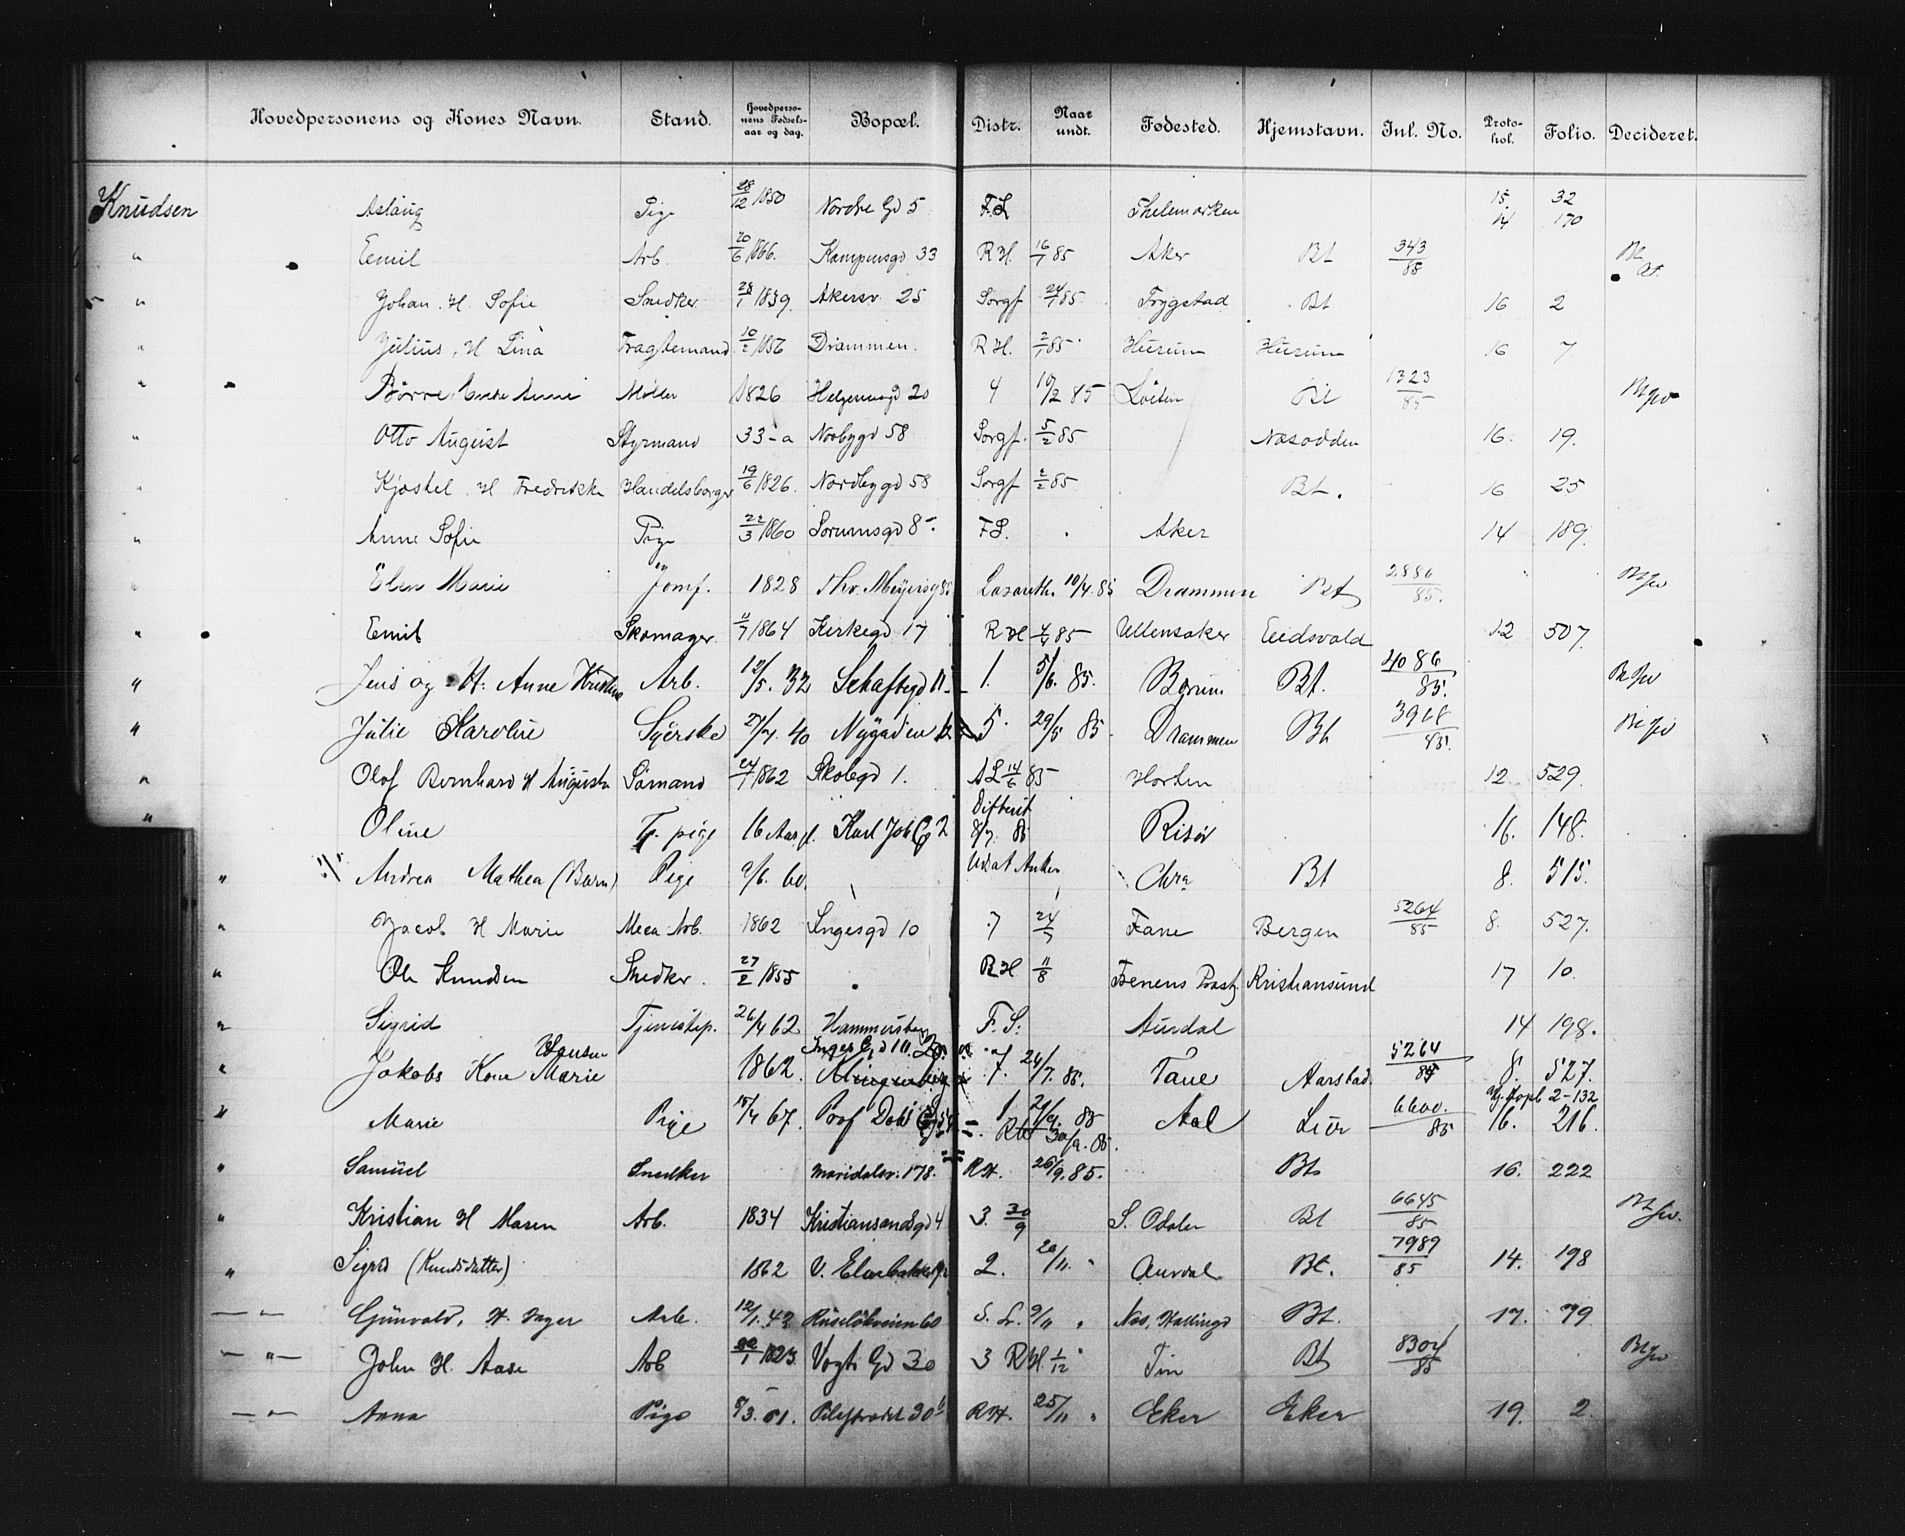 Hovedpersonens og Kones Navn. Stand. Hovedpersonens Fødselsaar og dag. Bopæl. Distr. Naar undt. Fødested. Hjemstavn. Inl. No. Protohol. Folio. Decideret.
Knudsen Aslaug Pige 28/12 1850 Nordre Gd 5 F.L Thelemarken 15. 32 14 170
" Emil Arb. 20/6 1866. Kampensgd 33 R.H. 16/7 85 Aker Bt 343/85
" Johan. H. Sofie Snedker 28/1 1839. Akersv. 25 Sorgf 24/1 85 Trygstad Bt 16 2
" Julius, H Lina Fragtemand 10/2 1856 Drammen. R H. 2/1 85 Hurum Hurum 16 7
" Børre, Enke Anne Møller 1826 Helgensgd 20 4 10/2 85 Løiten Bt 1323/85
" Otto August Styrmand 33-a Norbygd 58 Sorgf. 5/2 85 Næsodden 16. 19.
" Kjøstel H Fredrikke Handelsborger 19/6 1826. Nordbygd 58 Sorgf 2/2 85 Bt. 16 25
" Anne Sofie Pige 22/3 1860 Sorumsgd 8 F.L. Aker 14 189
" Elen Marie Jomf. 1828 Thv. Meyersg 85 Lasareth. 10/4. 85 Drammen Bt 2886/85.
" Emil Skomager 11/7 1864 Kirkegd 17 R H 4/4 85 Ullensaker Eidsvold 12 507
" Jens og H. Anne Kristine Arb. 12/5. 32 Schaftegd 11 1. 5/6. 85. Bærum Bt. 4086/85.
" Julie Karoline Syerske 27/7. 40 Nygaden 12 5. 29/5 85. Drammen Bt 3918/85.
" Olaf Bernhard H Augusta Sømand 24/7 1862 Skolegd 1. A L 14/6 85 Horten 12 529
" Oline Tj. pige 16 Aar Karl Joh Gd 2 Difterit 8/7. 85 Risør 16. 148.
" Andrea Mathea (Barn) Pige 9/6. 60. Udsat Anker Chra Bt 8. 515.
" Jacob H Marie Mek. Arb. 1862 Ingesgd 10 7 24/7 Fane Bergen 5264/85 8. 527.
" Ole Knudsen Snedker. 27/2 1855 R H 11/8 Kristiansund 17 10.
" Sigrid Tjenestep. 26/4 62 Hammersborg F. S: Aurdal 14 198.
" Jakobs Kone Marie Hansen 1862. Inges Gd 10. 7. 24/7. 85. Fane Aarstad. 5264/85 8. 527.
" Marie Pige 15/4 67. Prof Dahls Gd 1 21/9. 85 RH 30/9. 85. Aal Lier 6600./85 16. 216. 2-132
" Samuel Snedker Maridalsv. 178. R H. 26/9. 85. Bt 16. 222
" Kristian H Maren Arb. 1834 Kristiansandsgd 4 3. 30/9 S. Odalen Bt 6645/85
" Sigrid (Knudsdatter) 1862 V. Elvebakken 2. 20/11 " Aurdal Bt. 7989/85 14. 198
— " — Gunvald, H. Inger Arb. 12/1. 42 Ruseløkveien 60 S. L. 9/11 " Næs, Hallingd Bt. 17. 79
— " — John H. Aase Arb 1823. Vogts Gd 30 3 R H. 1/12 " Tin Bt 8304/85
— " — Anna Pige 9/3. 61. Pilestrædet 30 b R H. 25/11 " Eker Eker 19. 2.